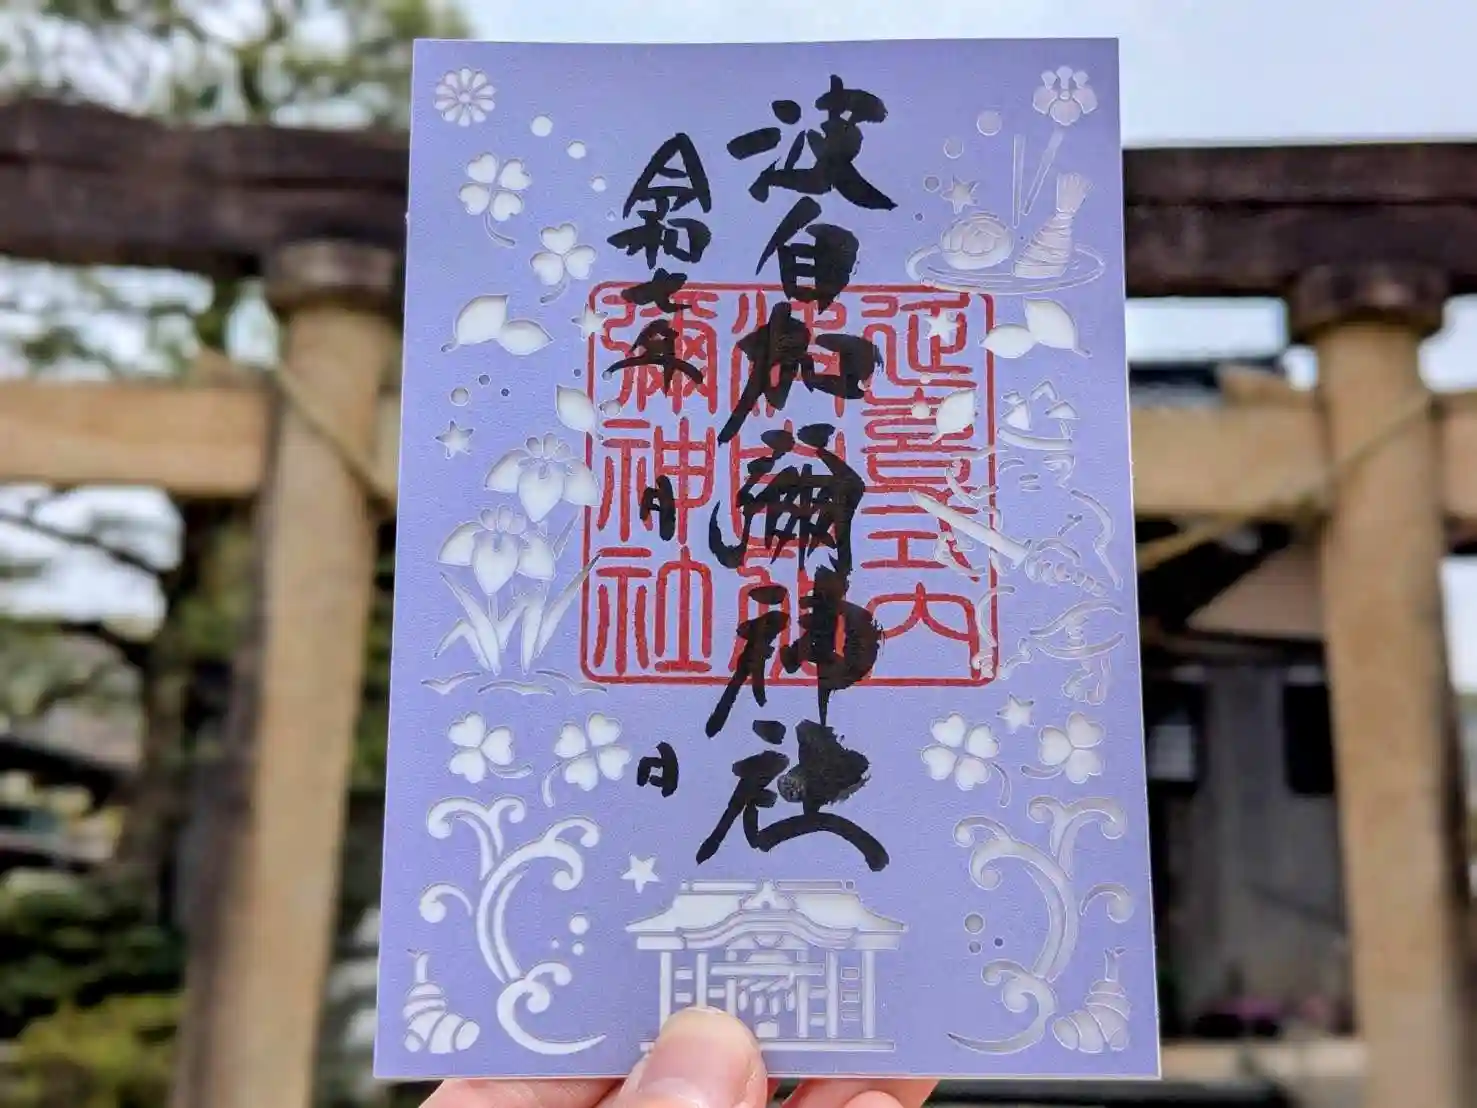 波自加彌神社
令和七年 月 日
延喜式内
波自加
彌神社